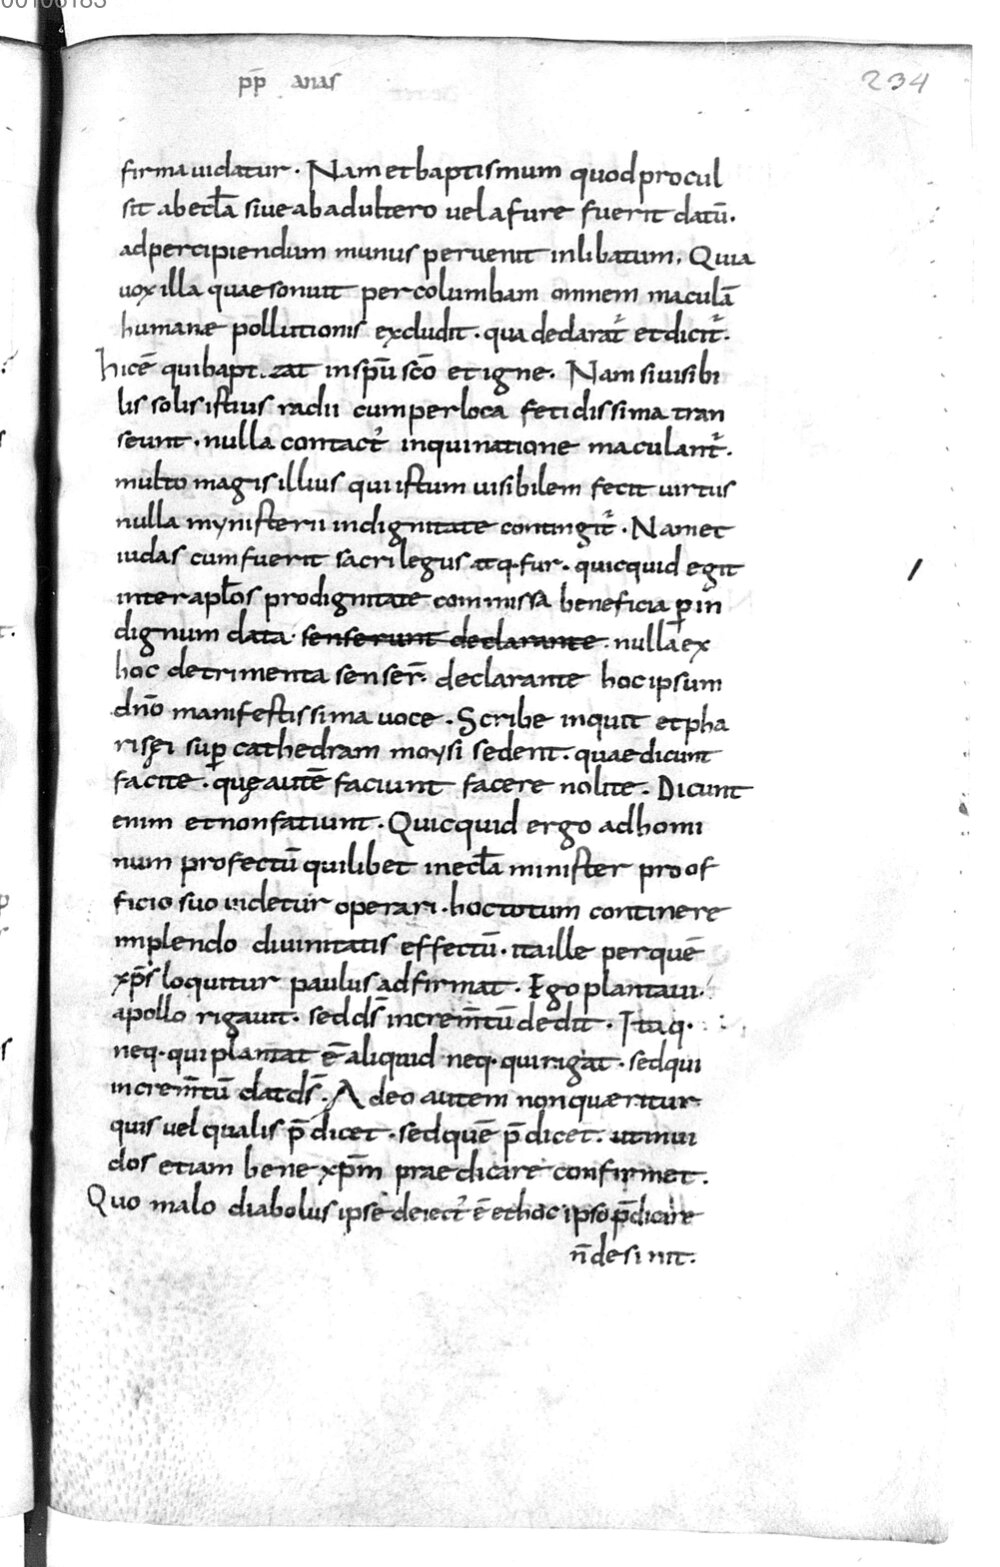 pp̄ anas
234
firma uidatur. Nam et baptismum quod procul
sit ab eccl̄a siue ab adultero uel a fure fuerit datū.
ad percipiendum munus peruenit inlibatum. Quia
uox illa quae sonuit per columbam omnem maculā
humanæ pollutionis excludit. qua declarat᷒ et dicit᷒.
hic ē qui baptizat in sp̄u sc̄o et igne. Nam si uisibi
lis solis istius radii cum per loca fetidissima tran
seunt. nulla contact᷒ inquinatione maculant᷒.
multo magis illius qui istum uisibilem fecit uirtus
nulla mynisterii indignitate contingit᷒. Nam et
iudas cum fuerit sacrilegus atq· fur. quicquid egit
inter apl̄os pro dignitate commissa beneficia ꝑ in
dignum data. senserunt declarante. nulla ex
hoc detrimenta senser̄. declarante hoc ipsum
dn̄o manifestissima uoce. Scribe inquit et pha
risęi suꝑ cathedram moysi sedent. quae dicunt
facite. quę autē faciunt facere nolite. Dicunt
enim et non fatiunt. Quicquid ergo ad homi
num profectū quilibet in eccl̄a minister pro of
ficio suo uidetur operari. hoc totum continere
implendo diuinitatis effectū. ita ille per quē
xp̄s loquitur paulus adfirmat. Ego plantaui.
apollo rigauit. sed ds̄ increm̄tū dedit. Itaq·
neq· qui plantat ē aliquid neq· qui rigat. sed qui
increm̄tū dat ds̄. A deo autem non quæritur
quis uel qualis p̄dicet. sed quē p̄dicet. ut inui
dos etiam bene xp̄m praedicare confirmet.
Quo malo diabolus ipse deiect᷒ ē et hoc ipso p̄dicare
n̄ desinit.